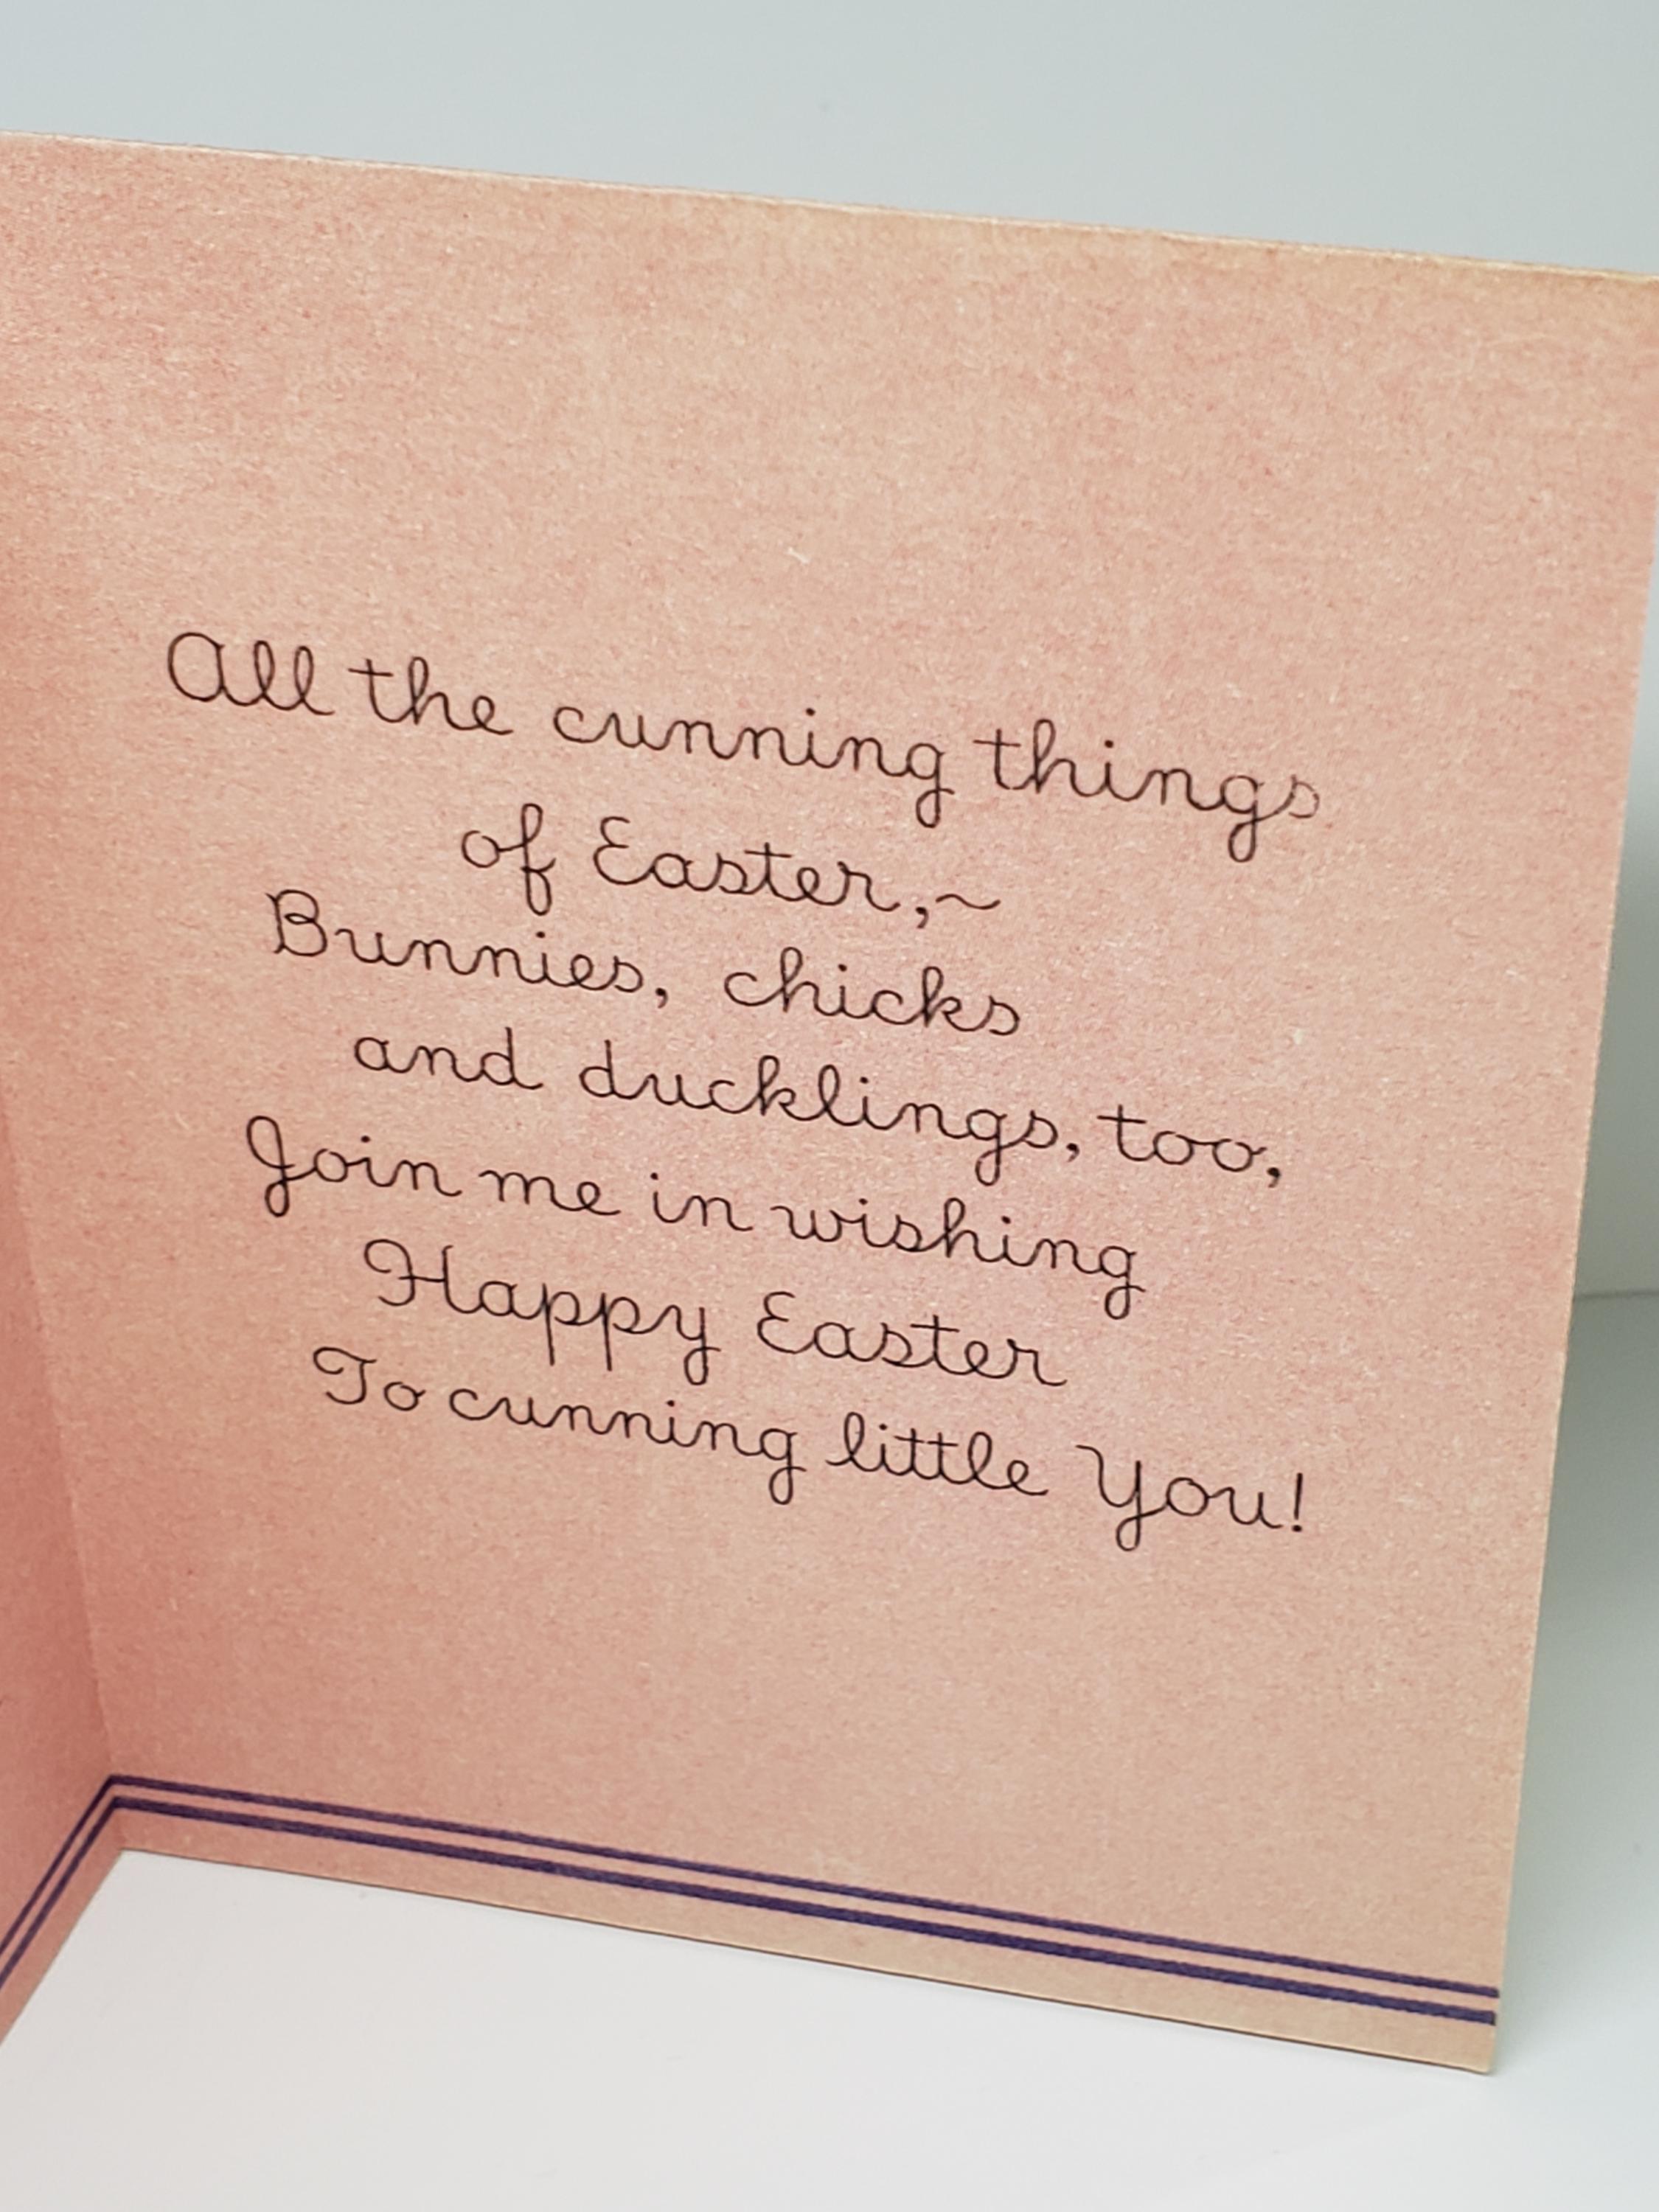 All the cunning things
of Easter,~
Bunnies, chicks
and ducklings, too,
Join me in wishing
Happy Easter
To cunning little You!